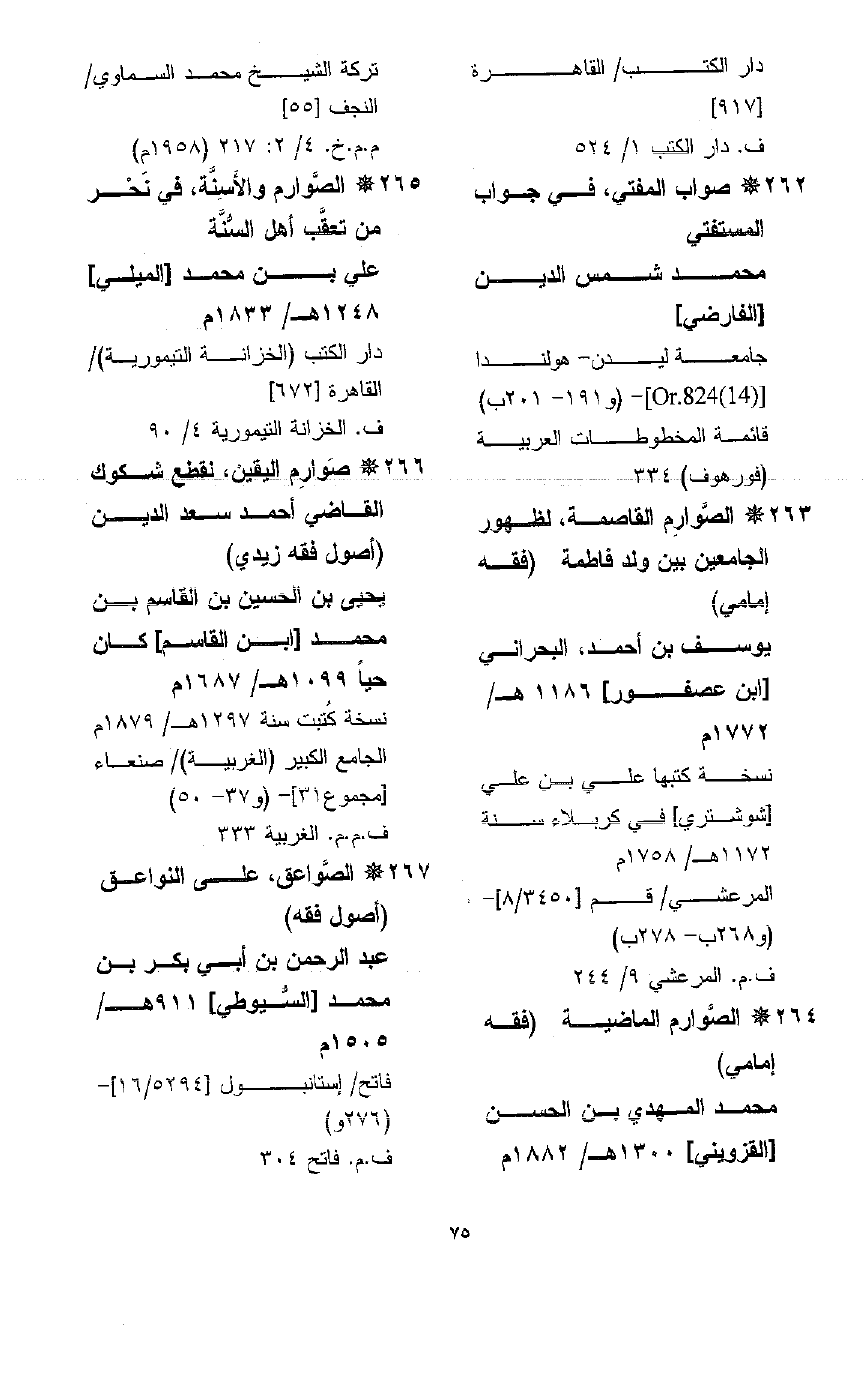 دار الكتب/ القاهرة
[٩١٧]
ف. دار الكتب ١/ ٥٢٤
٢٦٢* صواب المفتي، في جواب
المستفتي
محمد شمس الدين
[الفارضي]
جامعة ليدن- هولندا
[Or.824(14)]- (و١٩١- ٢٠١ب)
قائمة المخطوطات العربية
(فورهوف) ٣٣٤
٢٦٣* الصَّوارم القاصمة، لظهور
الجامعين بين ولد فاطمة (فقه
إمامي)
يوسف بن أحمد، البحراني
[ابن عصفور] ١١٨٦ هـ/
١٧٧٢م
نسخة كتبها علي بن علي
[شوشتري] في كربلاء سنة
١١٧٢هـ/ ١٧٥٨م
المرعشي/ قم [٨/٣٤٥٠]-
(و٢٦٨ب- ٢٧٨ب)
ف.م. المرعشي ٩/ ٢٤٤
٢٦٤* الصَّوارم الماضية (فقه
إمامي)
محمد المهدي بن الحسن
[القزويني] ١٣٠٠هـ/ ١٨٨٢م
تركة الشيخ محمد السماوي/
النجف [٥٥]
م.م.خ. ٤/ ٢: ٢١٧ (١٩٥٨م)
٢٦٥* الصَّوارم والأسِنَّة، في نَحْر
من تعقَّب أهل السُّنَّة
علي بن محمد [الميلي]
١٢٤٨هـ/ ١٨٣٣م
دار الكتب (الخزانة التيمورية)/
القاهرة [٦٧٢]
ف. الخزانة التيمورية ٤/ ٩٠
٢٦٦* صَوارِم اليقين، لقطع شكوك
القاضي أحمد سعد الدين
(أصول فقه زيدي)
يحيى بن الحسين بن القاسم بن
محمد [ابن القاسم] كان
حياً ١٠٩٩هـ/ ١٦٨٧م
نسخة كُتبت سنة ١٢٩٧هـ/ ١٨٧٩م
الجامع الكبير (الغربية)/ صنعاء
[مجموع٣١]- (و٣٧- ٥٠)
ف.م.م. الغربية ٣٣٣
٢٦٧* الصَّواعق، على النواعق
(أصول فقه)
عبد الرحمن بن أبي بكر بن
محمد [السُّيوطي] ٩١١هـ/
١٥٠٥م
فاتح/ إستانبول [١٦/٥٢٩٤]-
(٢٧٦و)
ف.م. فاتح ٣٠٤
٧٥